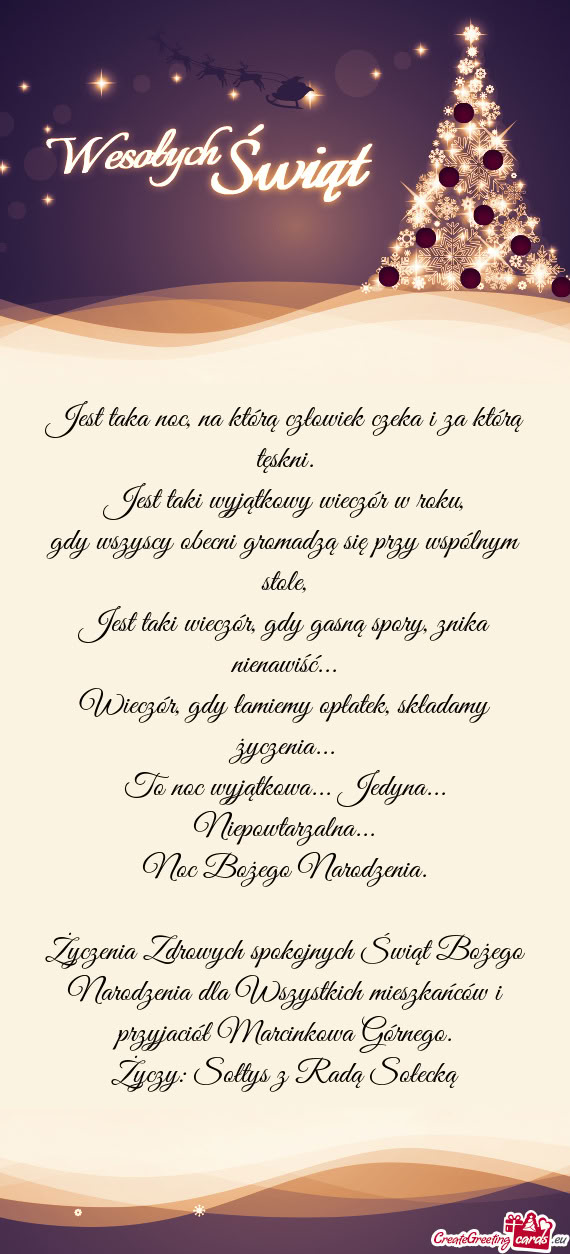 Wesołych Świąt
Jest taka noc, na którą człowiek czeka i za którą
tęskni.
Jest taki wyjątkowy wieczór w roku,
gdy wszyscy obecni gromadzą się przy wspólnym
stole,
Jest taki wieczór, gdy gasną spory, znika
nienawiść...
Wieczór, gdy łamiemy opłatek, składamy
życzenia...
To noc wyjątkowa... Jedyna...
Niepowtarzalna...
Noc Bożego Narodzenia.
Życzenia Zdrowych spokojnych Świąt Bożego
Narodzenia dla Wszystkich mieszkańców i
przyjaciół Marcinkowa Górnego.
Życzy: Sołtys z Radą Sołecką
CreateGreetingcards.eu